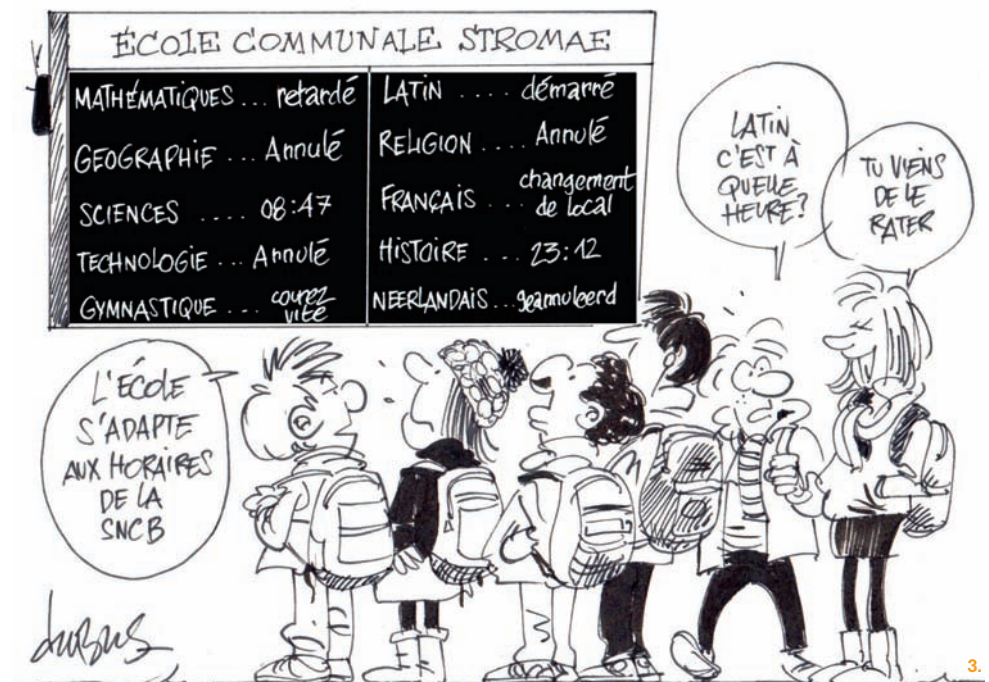 ÉCOLE COMMUNALE STROMAE
MATHÉMATIQUES... retardé
GEOGRAPHIE... Annulé
SCIENCES.... 08:47
TECHNOLOGIE... Annulé
GYMNASTIQUE... courez
vite
LATIN.... démarré
RELIGION.... Annulé
FRANÇAIS... changement
de local
HISTOIRE... 23:12
NEERLANDAIS...geannuleerd
LATIN
C'EST À
QUELLE
HEURE?
TU VIENS
DE LE
RATER
L'ÉCOLE
S'ADAPTE
AUX HORAIRES
DE LA
SNCB
dubus
3.